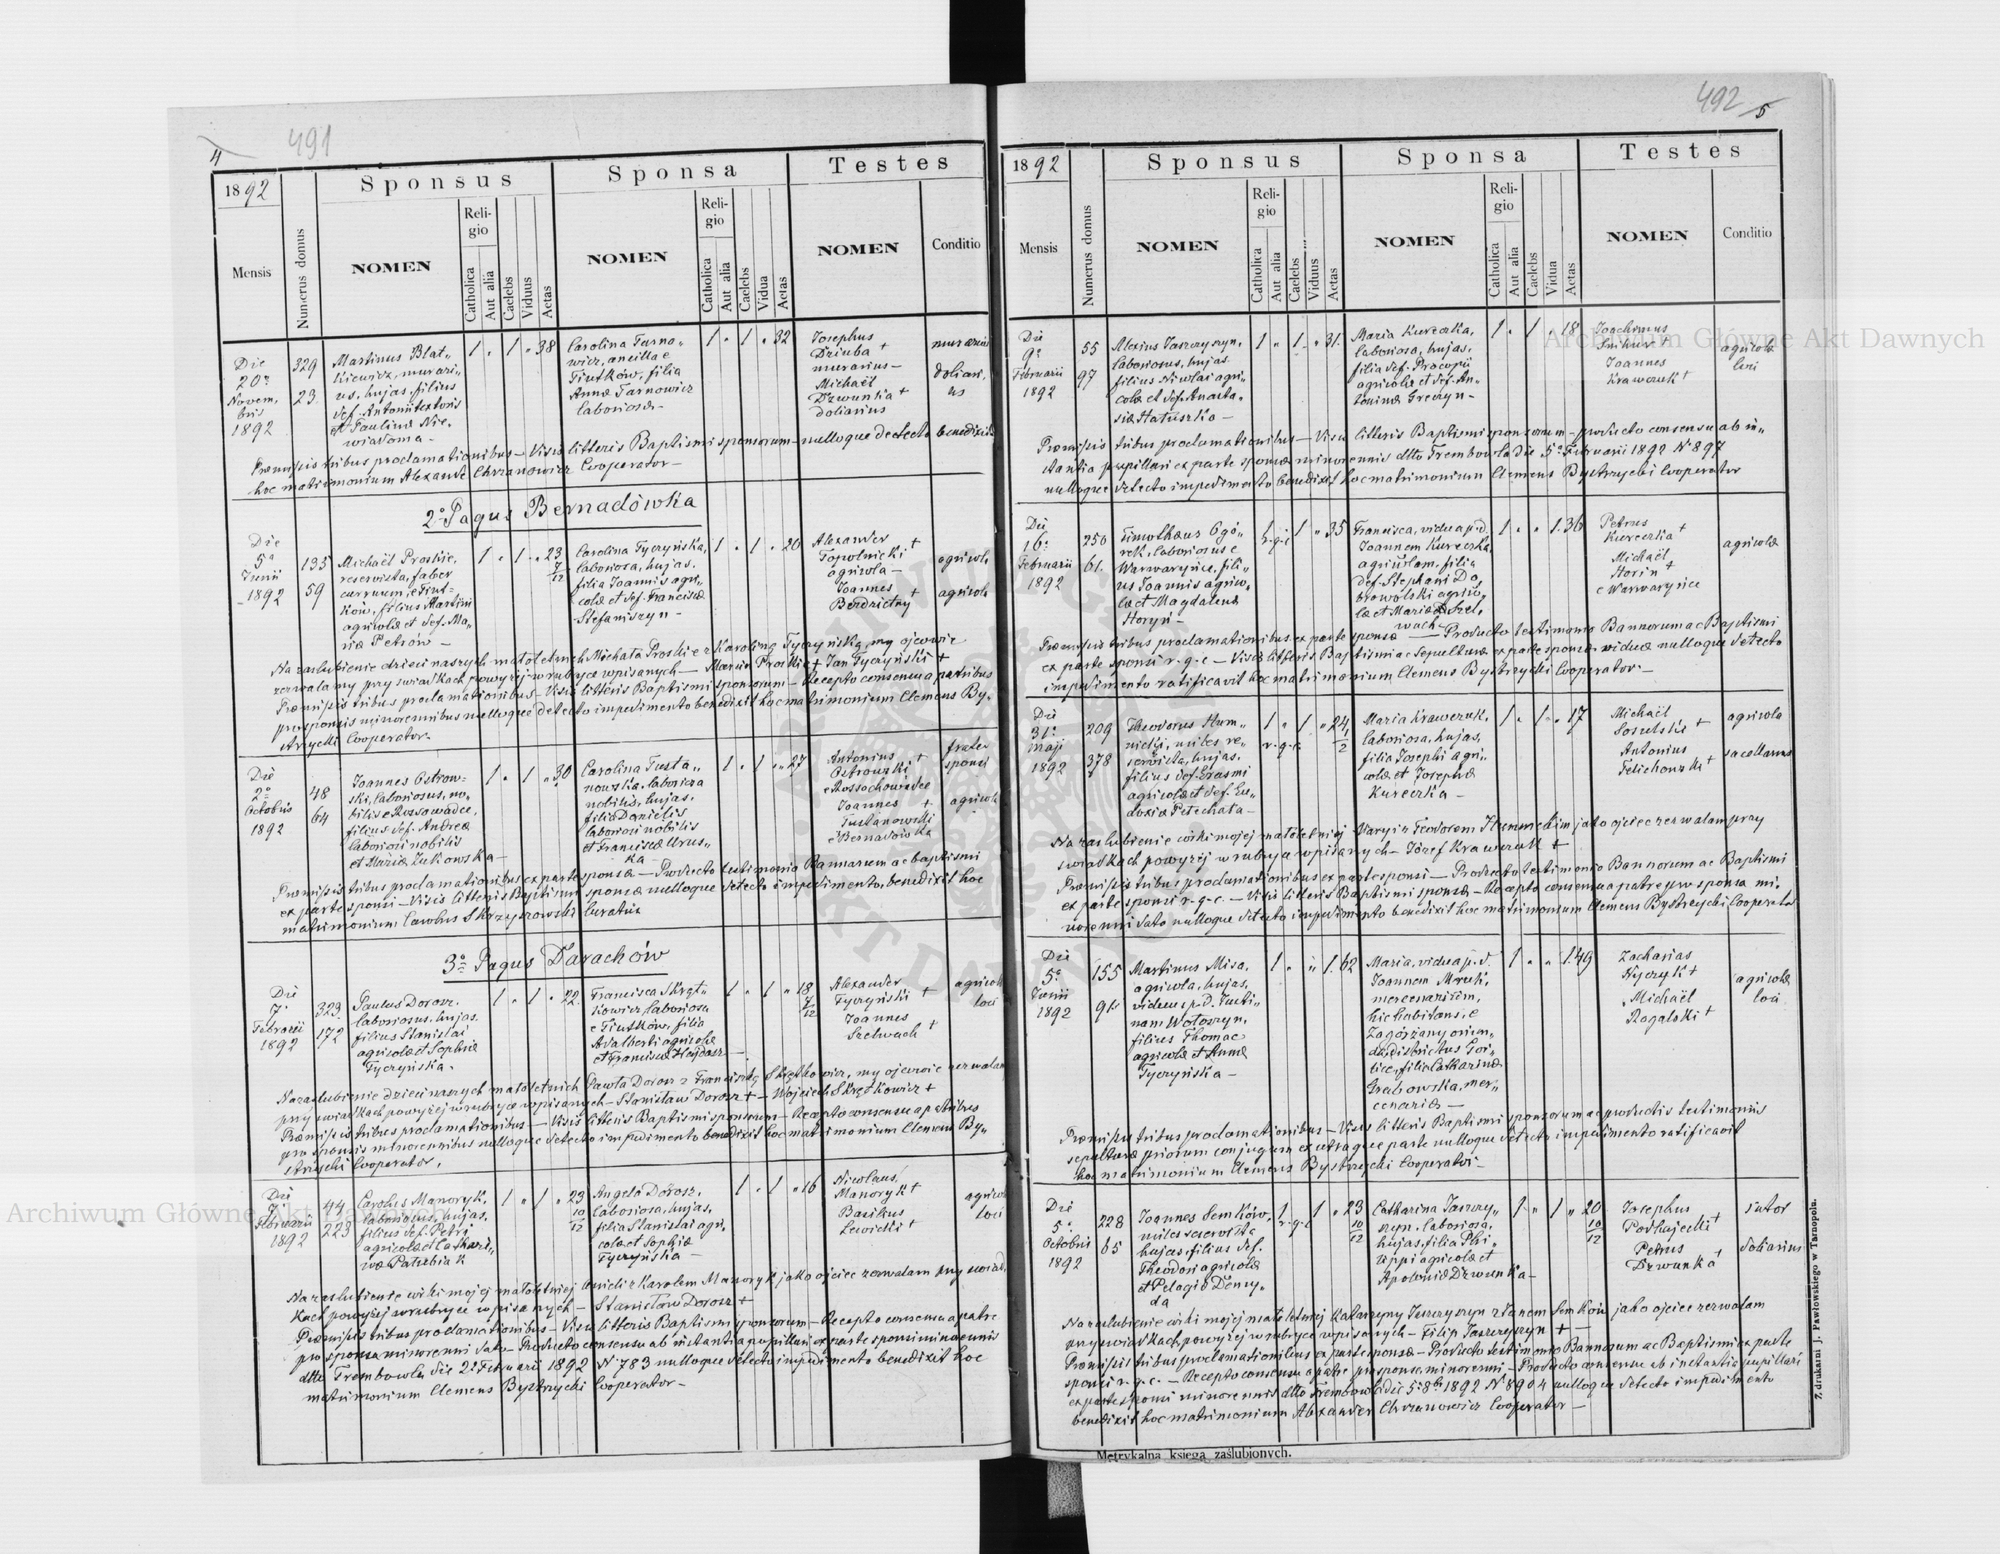 4
491
1892
Sponsus
Sponsa
Testes
Mensis
Numerus domus
NOMEN
Religio
Catholica
Aut alia
Caelebs
Viduus
Aetas
NOMEN
Religio
Catholica
Aut alia
Caelebs
Vidua
Aetas
NOMEN
Conditio
Die
20ª
Novem,
bris
1892
329
23
Martinus Blat„
kiewicz, murari„
us, hujas, filius
def. Antonii textoris
et Paulinæ Nie„
wiadoma -
1 „ 1 „ 38
Carolina Tarno„
wicz, ancilla e
Tiutków, filia
Annæ Tarnowicz
laboriosæ -
1 „ 1 „ 32
Josephus
Dziuba +
murarius -
Michaël
Dzwunka +
doliarius
murarius
doliari,
us
Præmissis tribus proclamationibus - Visis litteris Baptismi sponsorum - nulloque detecto benedixit
hoc matrimonium Alexander Chrzanowicz Cooperator -
2º Pagus Bernadówka
Die
5ª
Junii
1892
135
59
Michaël Proskie,
reservista, faber
curruum, e Tiut-
ków, filius Martini
agricolæ et def. Ma„
riæ Petrów -
1 „ 1 „ 23 7/12
Carolina Tyczyńska,
laboriosa, hujas,
filia Joannis agri„
colæ et def. Franciscæ
Stefaniszyn -
1 „ 1 „ 20
Alexander
Topolnicki +
agricola -
Joannes
Berdzictny +
agricola
agricola
Na zaślubienie dzieci naszych małoletnich Michała Proskie z Karoliną Tyczyńską, my ojcowie
zezwalamy przy świadkach powyżej w rubryce wpisanych - Marcin Proskie + Jan Tyczyński +
Præmissis tribus proclamationibus - Visis litteris Baptismi sponsorum - Recepto consensu a patribus
pro sponsis minorennibus nulloque detecto impedimento benedixit hoc matrimonium Clemens By„
strzycki Cooperator -
Die
2ª
Octobris
1892
48
64
Joannes Ostrow-
ski, laboriosus, no„
bilis e Rossowadce,
filius def. Andreæ
laboriosi nobilis
et Mariæ Żukowska -
1 „ 1 „ 30
Carolina Tusta„
nowska, laboriosa
nobilis, hujas,
filia Danielis
laboriosi nobilis
et Franciscæ Urus„
ka -
1 „ 1 „ 27
Antonius
Ostrowski +
e Rossochowadce
Joannes +
Tustanowski
e Bernadówka
frater
sponsi
agricola
Præmissis tribus proclamationibus ex parte sponsæ - Producto testimonio Bannorum ac baptismi
ex parte sponsi - Visis litteris Baptismi sponsæ nulloque detecto impedimento, benedixit hoc
matrimonium Carolus Skrzyszowski Curatus
3º Pagus Darachów
Die
7ª
Februarii
1892
323
172
Paulus Dorosz,
laboriosus, hujas,
filius Stanislai
agricolæ et Sophiæ
Tyczyńska -
1 „ 1 „ 22
Francisca Skręt„
kowicz, laboriosa
e Tiutków, filia
Adalberti agricolæ
et Franciscæ Hajdasz -
1 „ 1 „ 18 7/12
Alexander
Tyczyński +
Joannes
Szelwach +
agricolæ
loci
Na zaślubienie dzieci naszych małoletnich Pawła Dorosz z Franciszką Skrętkowicz, my ojcowie zezwalam
przy świadkach powyżej w rubryce wpisanych - Stanisław Dorosz + - Wojciech Skrętkowicz +
Præmissis tribus proclamationibus - Visis litteris Baptismi sponsorum - Recepto consensu a patribus
pro sponsis minorennibus nulloque detecto impedimento benedixit hoc matrimonium Clemens By„
strzycki Cooperator,
Die
7ª
Februarii
1892
44
223
Carolus Manoryk,
laboriosus, hujas,
filius def. Petri
agricolæ et Cathari„
næ Patrebiak
1 „ 1 „ 23 10/12
Angela Dorosz,
laboriosa, hujas,
filia Stanislai agri„
colæ et Sophiæ
Tyczyńska -
1 „ 1 „ 16
Nicolaus
Manoryk +
Basilius
Lewicki +
agricolæ
loci
Na zaślubienie córki mojej małoletniej Anieli z Karolem Manoryk jako ojciec zezwalam przy świad,
kach powyżej w rubryce wpisanych - Stanisław Dorosz +
Præmissis tribus proclamationibus - Visis litteris Baptismi sponsorum - Recepto consensu a patre
pro sponsa minorenni dato - Producto consensu ab instantia pupillari ex parte sponsi minorennis
dtto Trembowla die 2ª Februarii 1892 Nº 783 nulloque detecto impedimento benedixit hoc
matrimonium Clemens Bystrzycki Cooperator -
492
5
1892
Sponsus
Sponsa
Testes
Mensis
Numerus domus
NOMEN
Religio
Catholica
Aut alia
Caelebs
Viduus
Aetas
NOMEN
Religio
Catholica
Aut alia
Caelebs
Vidua
Aetas
NOMEN
Conditio
Die
9ª
Februarii
1892
55
97
Alexius Jaszczyszyn,
laboriosus, hujas,
filius Nicolai agri„
colæ et def. Anasta„
siæ Hatuszka -
1 „ 1 „ 31
Maria Kureczka,
laboriosa, hujas,
filia def. Procopii
agricolæ et def. An„
toninæ Greczyn -
1 „ 1 „ 18
Joachimus
Smikur +
Joannes
Krawczuk +
agricolæ
loci
Præmissis tribus proclamationibus - Visis litteris Baptismi sponsorum - producto consensu ab in„
stantia pupillari ex parte sponsæ minorennis dtto Trembowla die 5ª Februarii 1892 Nº 897
nulloque detecto impedimento benedixit hoc matrimonium Clemens Bystrzycki Cooperator
Die
16ª
Februarii
1892
250
61
Timotheus Ogó„
rek, laboriosus e
Warwaryńce, fili„
us Joannis agrico„
læ et Magdalenæ
Horyn -
1 r.g.c 1 „ 35
Francisca, vidua p. d.
Joannem Kureczka
agricolam, filia
def. Stephani Do„
browolski agrico„
læ et Mariæ Szel„
wach -
1 „ „ 1 36
Petrus
Kureczka +
Michaël
Horin +
e Warwaryńce
agricolæ
Præmissis tribus proclamationibus ex parte sponsæ - Producto testimonio Bannorum ac Baptismi
ex parte sponsi r.g.c - Visis litteris Baptismi ac Sepulturæ ex parte sponsæ viduæ nulloque detecto
impedimento ratificavit hoc matrimonium Clemens Bystrzycki Cooperator -
Die
31ª
Maji
1892
209
378
Theodorus Hum„
nicki, miles re„
servista, hujas,
filius def. Erasmi
agricolæ et def. Eu„
doxiæ Petechata -
1 r.g.c. 1 „ 24 1/2
Maria Krawczuk,
laboriosa, hujas,
filia Josephi agri„
colæ et Josephæ
Kureczka -
1 „ 1 „ 17
Michaël
Soszelski +
Antonius
Felichowski +
agricola
sacellanus
Na zaślubienie córki mojej małoletniej Maryi z Teodorem Humnickim jako ojciec zezwalam przy
świadkach powyżej w rubryce wpisanych - Józef Krawczuk +
Præmissis tribus proclamationibus ex parte sponsi - Producto testimonio Bannorum ac Baptismi
ex parte sponsi r.g.c. - Visis litteris Baptismi sponsæ - Recepto consensu a patre pro sponsa mi„
norenni dato nulloque detecto impedimento benedixit hoc matrimonium Clemens Bystrzycki Cooperator
Die
5ª
Junii
1892
155
91
Martinus Misa,
agricola, hujas,
viduus p. d. Justi„
nam Wołoszyn,
filius Thomae
agricolæ et Annæ
Tyczyńska -
1 „ „ 1 62
Maria, vidua p. d.
Joannem Mruk,
mercenarium,
hic habitans, e
Zagórzany oriun„
da, districtus Gor„
lice, filia Catharinæ
Grabowska, mer„
cenariæ -
1 „ „ 1 49
Zacharias
Nyczyk +
Michaël
Rogalski +
agricolæ
loci
Præmissis tribus proclamationibus - Visis litteris Baptismi sponsorum ac productis testimoniis
sepulturæ priorum conjugum ex utraque parte nulloque detecto impedimento ratificavit
hoc matrimonium Clemens Bystrzycki Cooperator -
Die
5ª
Octobris
1892
228
65
Joannes Semków,
miles reservista
hujas, filius def.
Theodori agricolæ
et Pelagiæ Denny„
da
1 r.g.c 1 „ 23 10/12
Catharina Jaszczy„
szyn, laboriosa,
hujas, filia Phi„
lippi agricolæ et
Apoloniæ Dzwunka -
1 „ 1 „ 20 10/12
Josephus
Podhajecki +
Petrus
Dzwunka +
sutor
doliarius
Na zaślubienie córki mojej małoletniej Katarzyny Jaszczyszyn z Janem Semków jako ojciec zezwalam
przy świadkach powyżej w rubryce wpisanych - Filip Jaszczyszyn +
Præmissis tribus proclamationibus ex parte sponsæ - Producto testimonio Bannorum ac Baptismi ex parte
sponsi r.g.c. - Recepto consensu a patre pro sponsa minorenni - Producto consensu ab instantia pupillari
ex parte sponsi minorennis dtto Trembowla die 5ª 8bris 1892 Nº 8904 nulloque detecto impedimento
benedixit hoc matrimonium Alexander Chrzanowicz Cooperator -
Metrykalna księga zaślubionych.
Z drukarni J. Pawłowskiego w Tarnopolu.
Archiwum Główne Akt Dawnych
Archiwum Główne Akt Dawnych